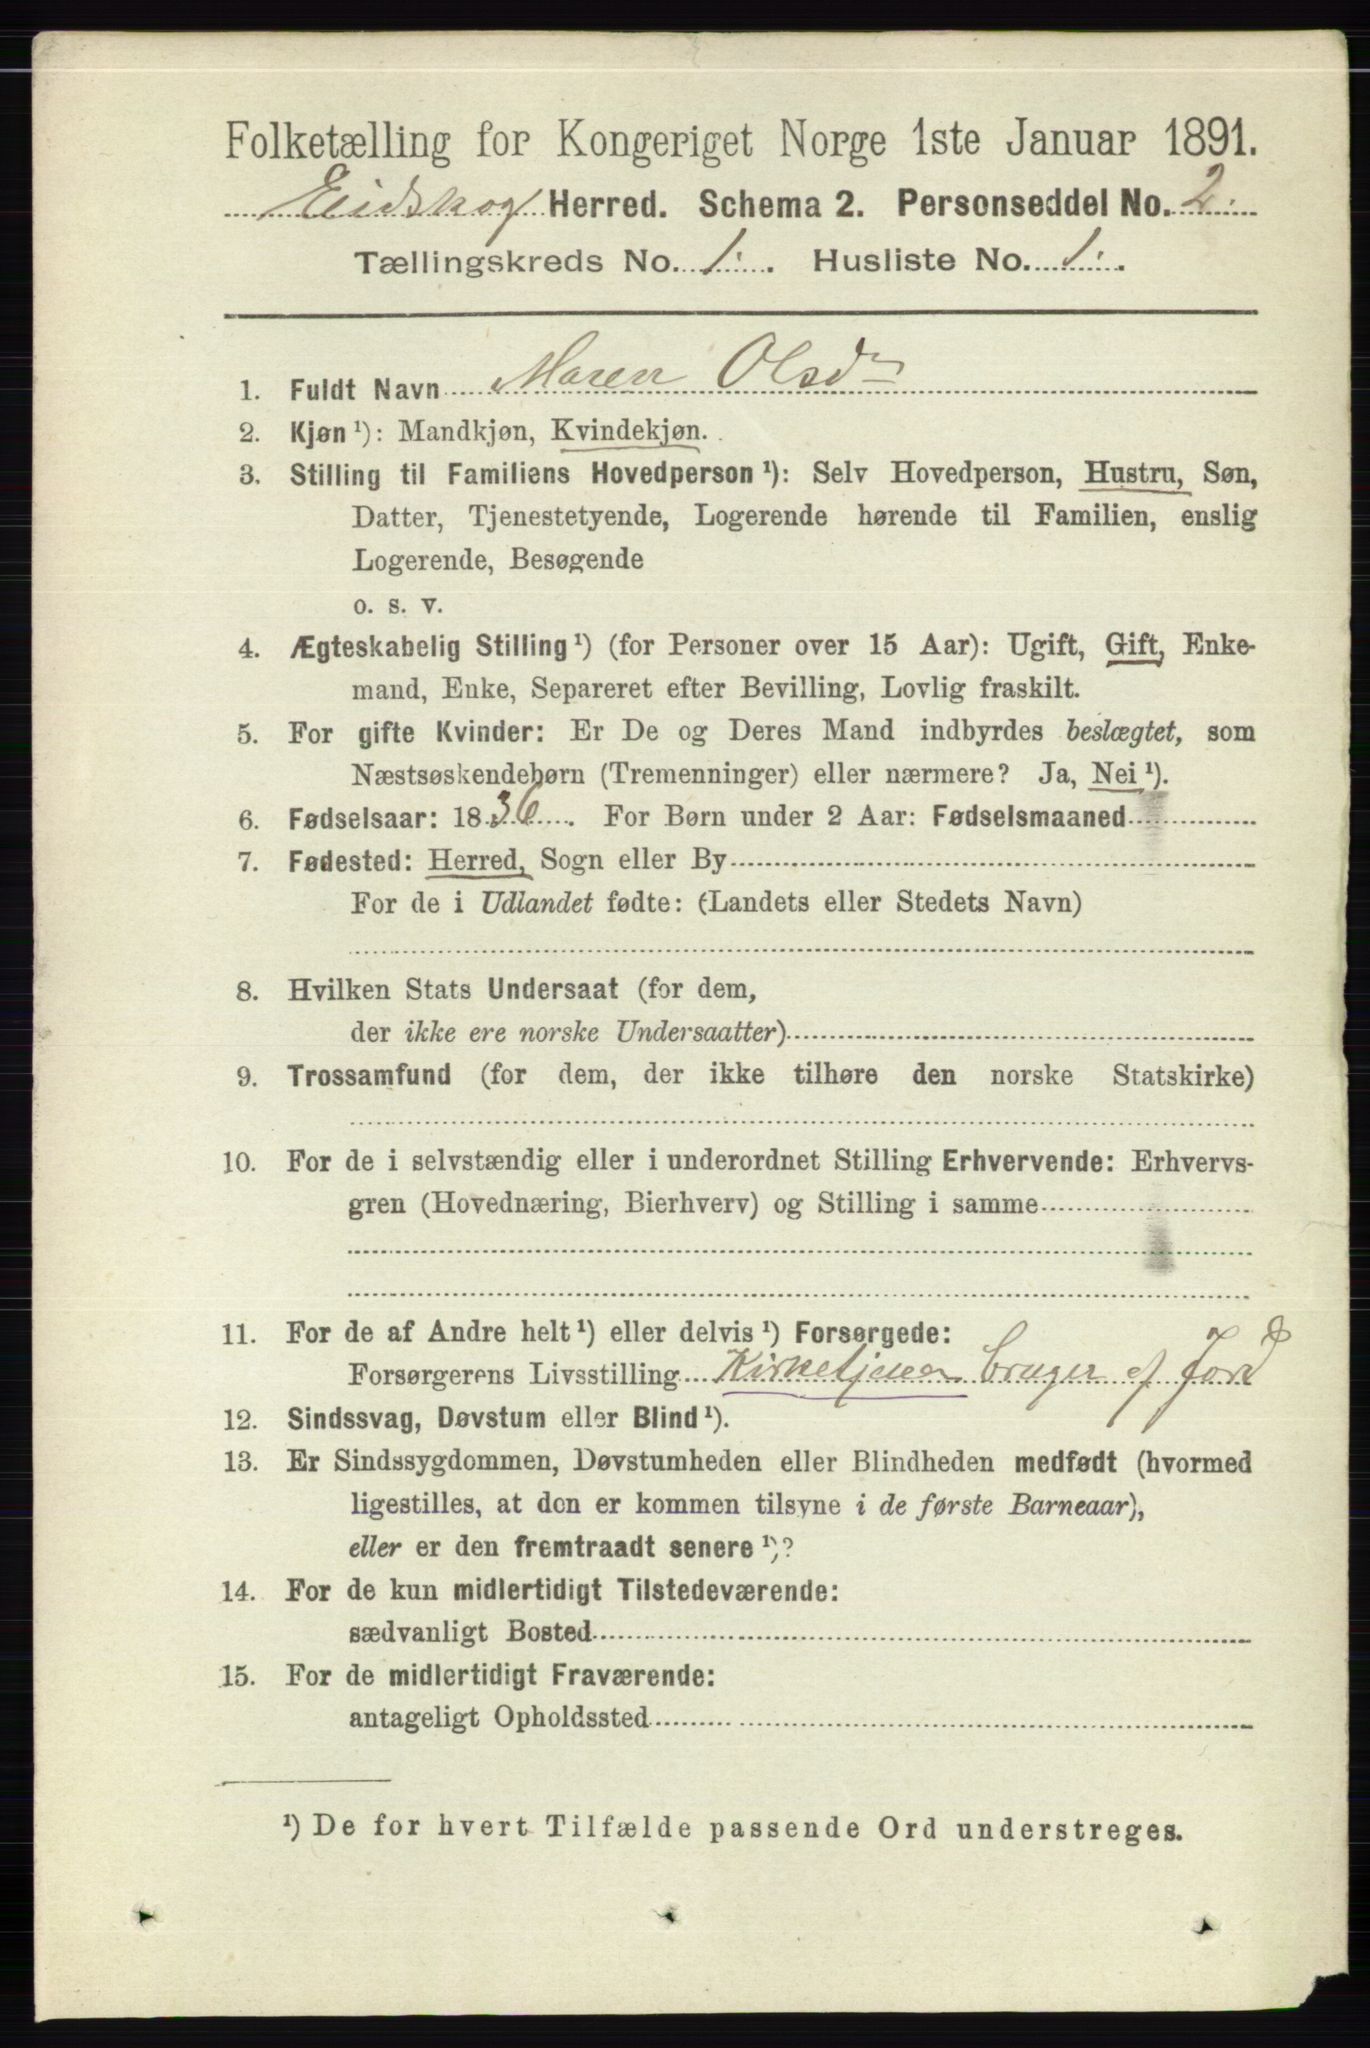 Folketælling for Kongeriget Norge 1ste Januar 1891.
Eidskog Herred. Schema 2. Personseddel No. 2.
Tællingskreds No. 1. Husliste No. 1.
1. Fuldt Navn Maren Olsdr
2. Kjøn ¹): Mandkjøn, Kvindekjøn.
3. Stilling til Familiens Hovedperson ¹): Selv Hovedperson, Hustru, Søn,
Datter, Tjenestetyende, Logerende hørende til Familien, enslig
Logerende, Besøgende
o. s. v.
4. Ægteskabelig Stilling ¹) (for Personer over 15 Aar): Ugift, Gift, Enke-
mand, Enke, Separeret efter Bevilling, Lovlig fraskilt.
5. For gifte Kvinder: Er De og Deres Mand indbyrdes beslægtet, som
Næstsøskendebørn (Tremenninger) eller nærmere? Ja, Nei ¹).
6. Fødselsaar: 1836. For Børn under 2 Aar: Fødselsmaaned
7. Fødested: Herred, Sogn eller By
For de i Udlandet fødte: (Landets eller Stedets Navn)
8. Hvilken Stats Undersaat (for dem,
der ikke ere norske Undersaatter)
9. Trossamfund (for dem, der ikke tilhøre den norske Statskirke)
10. For de i selvstændig eller i underordnet Stilling Erhvervende: Erhvervs-
gren (Hovednæring, Bierhverv) og Stilling i samme
11. For de af Andre helt ¹) eller delvis ¹) Forsørgede:
Forsørgerens Livsstilling Kirketjener bruger af Jord
12. Sindssvag, Døvstum eller Blind ¹).
13. Er Sindssygdommen, Døvstumheden eller Blindheden medfødt (hvormed
ligestilles, at den er kommen tilsyne i de første Barneaar),
eller er den fremtraadt senere ¹)?
14. For de kun midlertidigt Tilstedeværende:
sædvanligt Bosted
15. For de midlertidigt Fraværende:
antageligt Opholdssted
¹) De for hvert Tilfælde passende Ord understreges.